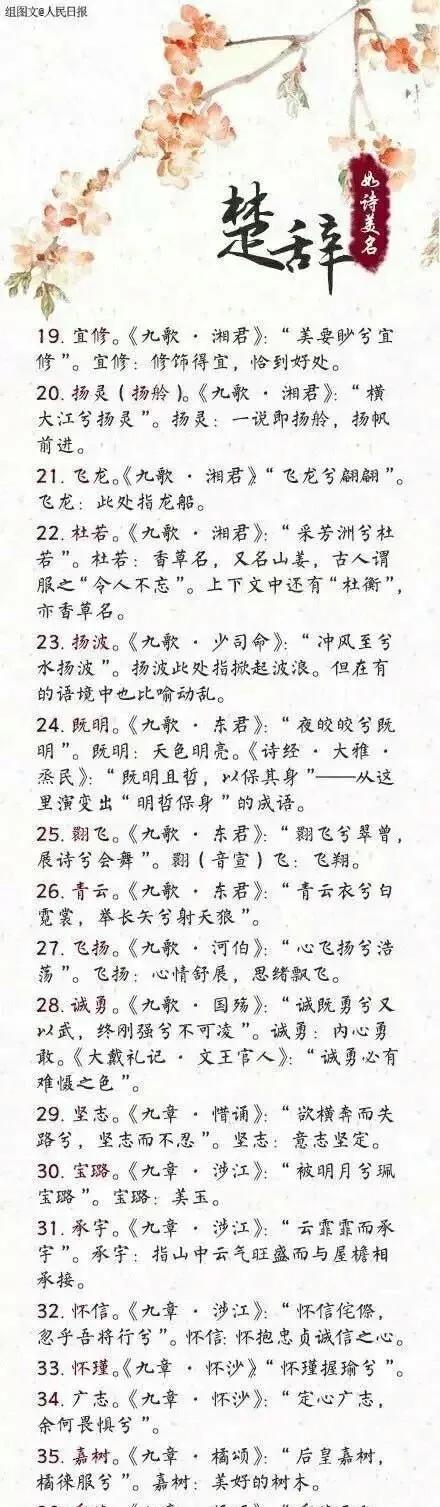 组图文@人民日报
楚辞
如诗美名
19. 宜修。《九歌·湘君》：“美要眇兮宜
修”。宜修：修饰得宜，恰到好处。
20. 扬灵（扬舲）。《九歌·湘君》：“横
大江兮扬灵”。扬灵：一说即扬舲，扬帆
前进。
21. 飞龙。《九歌·湘君》“飞龙兮翩翩”。
飞龙：此处指龙船。
22. 杜若。《九歌·湘君》：“采芳洲兮杜
若”。杜若：香草名，又名山姜，古人谓
服之“令人不忘”。上下文中还有“杜衡”，
亦香草名。
23. 扬波。《九歌·少司命》：“冲风至兮
水扬波”。扬波此处指掀起波浪。但在有
的语境中也比喻动乱。
24. 既明。《九歌·东君》：“夜皎皎兮既
明”。既明：天色明亮。《诗经·大雅·
烝民》：“既明且哲，以保其身”——从这
里演变出“明哲保身”的成语。
25. 翾飞。《九歌·东君》：“翾飞兮翠曾，
展诗兮会舞”。翾（音宣）飞：飞翔。
26. 青云。《九歌·东君》：“青云衣兮白
霓裳，举长矢兮射天狼”。
27. 飞扬。《九歌·河伯》：“心飞扬兮浩
荡”。飞扬：心情舒展，思绪飘飞。
28. 诚勇。《九歌·国殇》：“诚既勇兮又
以武，终刚强兮不可凌”。诚勇：内心勇
敢。《大戴礼记·文王官人》：“诚勇必有
难慑之色”。
29. 坚志。《九章·惜诵》：“欲横奔而失
路兮，坚志而不忍”。坚志：意志坚定。
30. 宝璐。《九章·涉江》：“被明月兮珮
宝璐”。宝璐：美玉。
31. 承宇。《九章·涉江》：“云霏霏而承
宇”。承宇：指山中云气旺盛而与屋檐相
承接。
32. 怀信。《九章·涉江》：“怀信侘傺，
忽乎吾将行兮”。怀信：怀抱忠贞诚信之心。
33. 怀瑾。《九章·怀沙》“怀瑾握瑜兮”。
34. 广志。《九章·怀沙》：“定心广志，
余何畏惧兮”。
35. 嘉树。《九章·橘颂》：“后皇嘉树，
橘徕服兮”。嘉树：美好的树木。